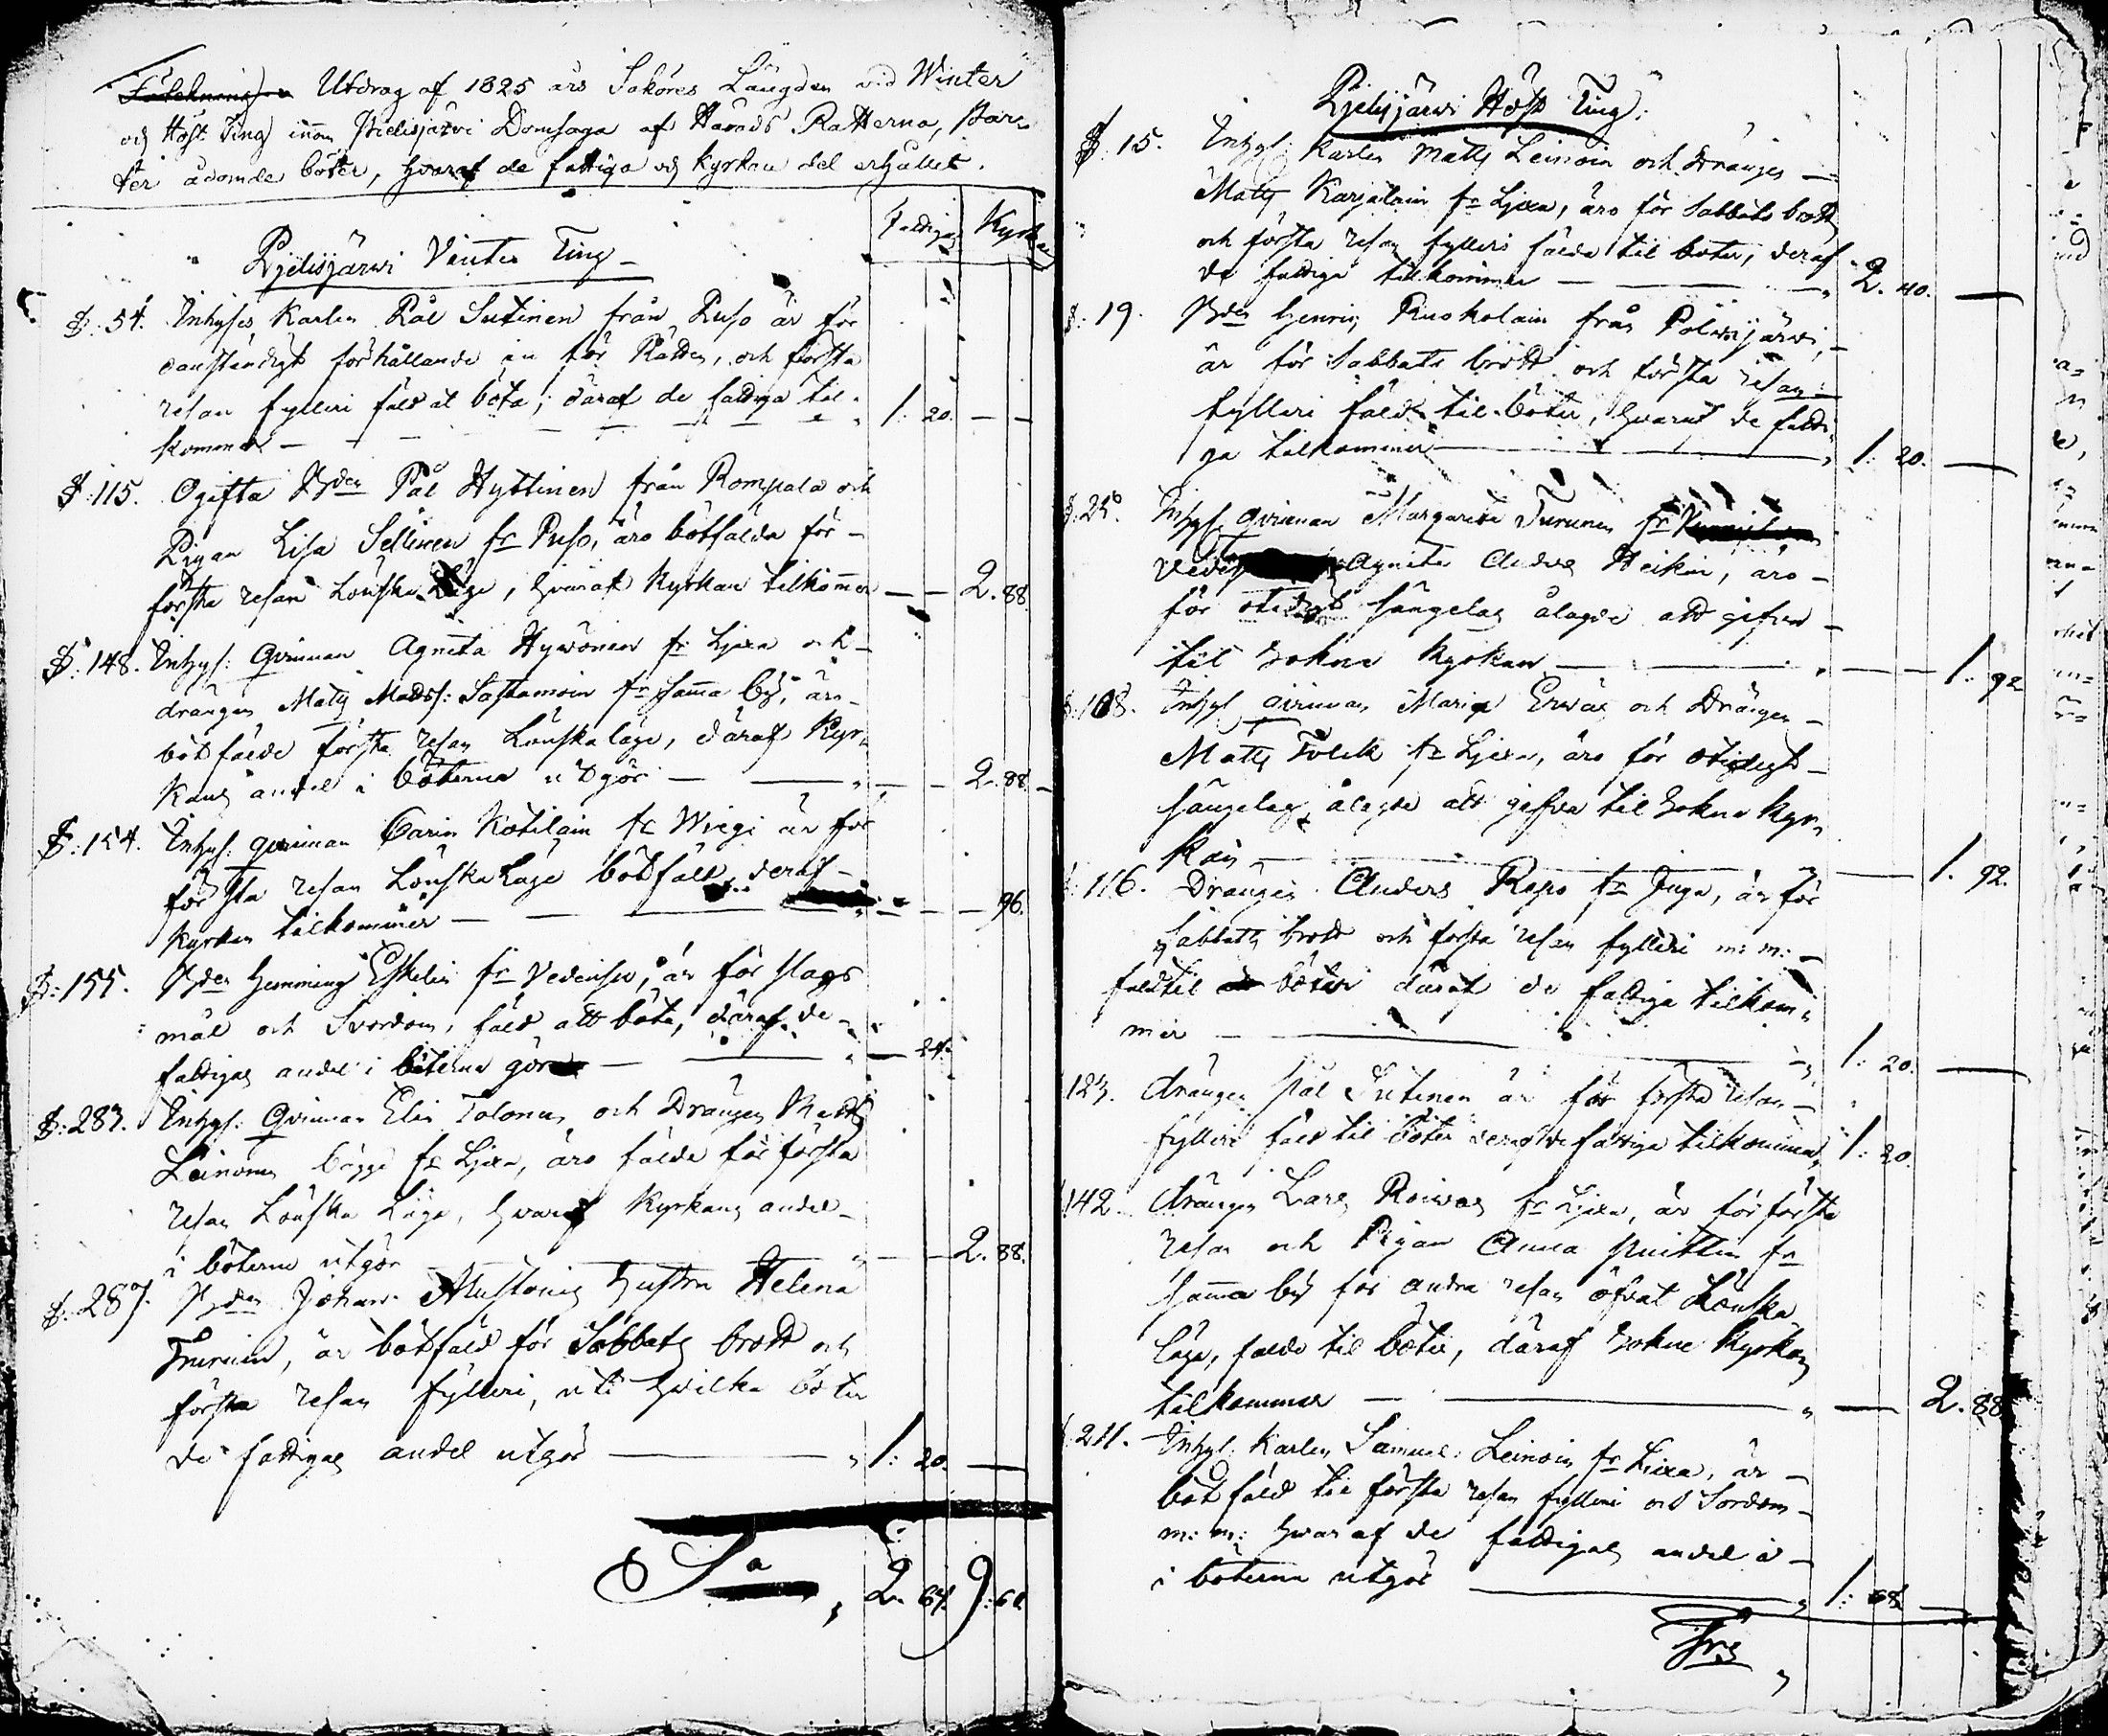 Utdrag af 1825 års Saköres Längden vid Winter
och Höst Ting innom Pielisjärvi Domsaga af Härads Rätterna, Par-
ter ådömde böter, hvaraf de fattiga och Kyrkan del erhållit.
Fattiga Kyrkan
Pjelisjärvi Vinter Ting
§. 54. Inhyses Karlen Pål Sutinen från Puso är för
oanständigt förhållande in för Rätten, och första
resan fylleri fäld at böta; däraf de fattiga til-
kommer — 1: 20. — —
§. 115. Ogifta Bden Pål Hyttinen från Rompala och
Pigan Lisa Sellinen fr Puso, äro bötfälda för
första resan Lönska Läge, hvaraf Kyrkan tilkommer — — 2. 88.
§. 148. Inhys: Qvinnan Agneta Hyvönen fr Lixa och
drängen Matts Madss: Sastamoin fr samma by, äro
bötfälde första resan Lönskaläge, däraf Kyr-
kans andel i böterna utgör — — — 2. 88.
§. 154. Inhys: qvinnan Carin Kotilain fr Wiegi är för
första resan Lönska Läge bötfäld, deraf
Kyrkan tilkommer — — — 96.
§. 155. Bden Henming Eskelin fr Vedensu, är för slags
mål och Svordom, fäld att böta, däraf de
fattigas andel i böterna gör — — 24.
§. 283. Inhys: Qvinnan Elin Tolonen och Drängen Matts
Leinonen bägge fr Lixa, äro fälde för första
resan Lönska Läge, hvaraf Kyrkans andel
i böterna utgör — — 2. 88.
§. 287. Bden Johan Mustonens hustru Helena
Turunen, är bötfäld för Sabbats brott och
första resan fylleri, uti hvilka böter
de fattigas andel utgör — 1: 20. —
Sa 2. 64. 9: 60.
Pjelisjärvi Höst Ting:
§. 15. Inhys: Karlen Matts Leinoin och Drängen
Matts Karjalain fr Lixa, äro för Sabbats brott
och första resan fylleri fälde til böter, deraf
de fattiga tilkommer — 2. 40. —
§. 19. Bden Henric Ruokolain från Polvijärvi,
är för Sabbats brott och första resan
fylleri fäld til böter, hvaraf de fatti-
ga tilkommer — 1: 20. —
Inhyse qvinnan Margareta Turunen fr
Agneta Heikin, äro
för otidigt sängelag ålagde att gifva
til Sokne Kyrkan — — 1. 92
§. 108. Inhys qvinnan Maria Ervas och Drängen
Matts Tolek fr Lixa, äro för otidigt
sängelag, ålagde att gifva til Sokne Kyr-
kan — — 1. 92.
§. 116. Drängen Anders Repo fr Juga, är för
Sabbats brott och första resan fylleri m: m:
fäld til böter däraf de fattiga tilkom-
mer — 1: 20. —
123. drängen Pål Sutinen är för första resan
fylleri fäld til böter deraf de fattiga tilkommer 1: 20.
142. drängen Lars Roivas fr Lixa, är för första
resan och Pigan Anna fr
samma by för andra resan öfvat Lönska
läge, fälde til böter, däraf Sokne Kyrkan
tilkommer — — 2. 88
§. 211. Inhys: Karlen Samuel Leinoin fr Lixa, är
bötfäld för första resan fylleri och Sordom
m: m: hvaraf de fattigas andel
i böterna utgör — 1: 68. —
Trs